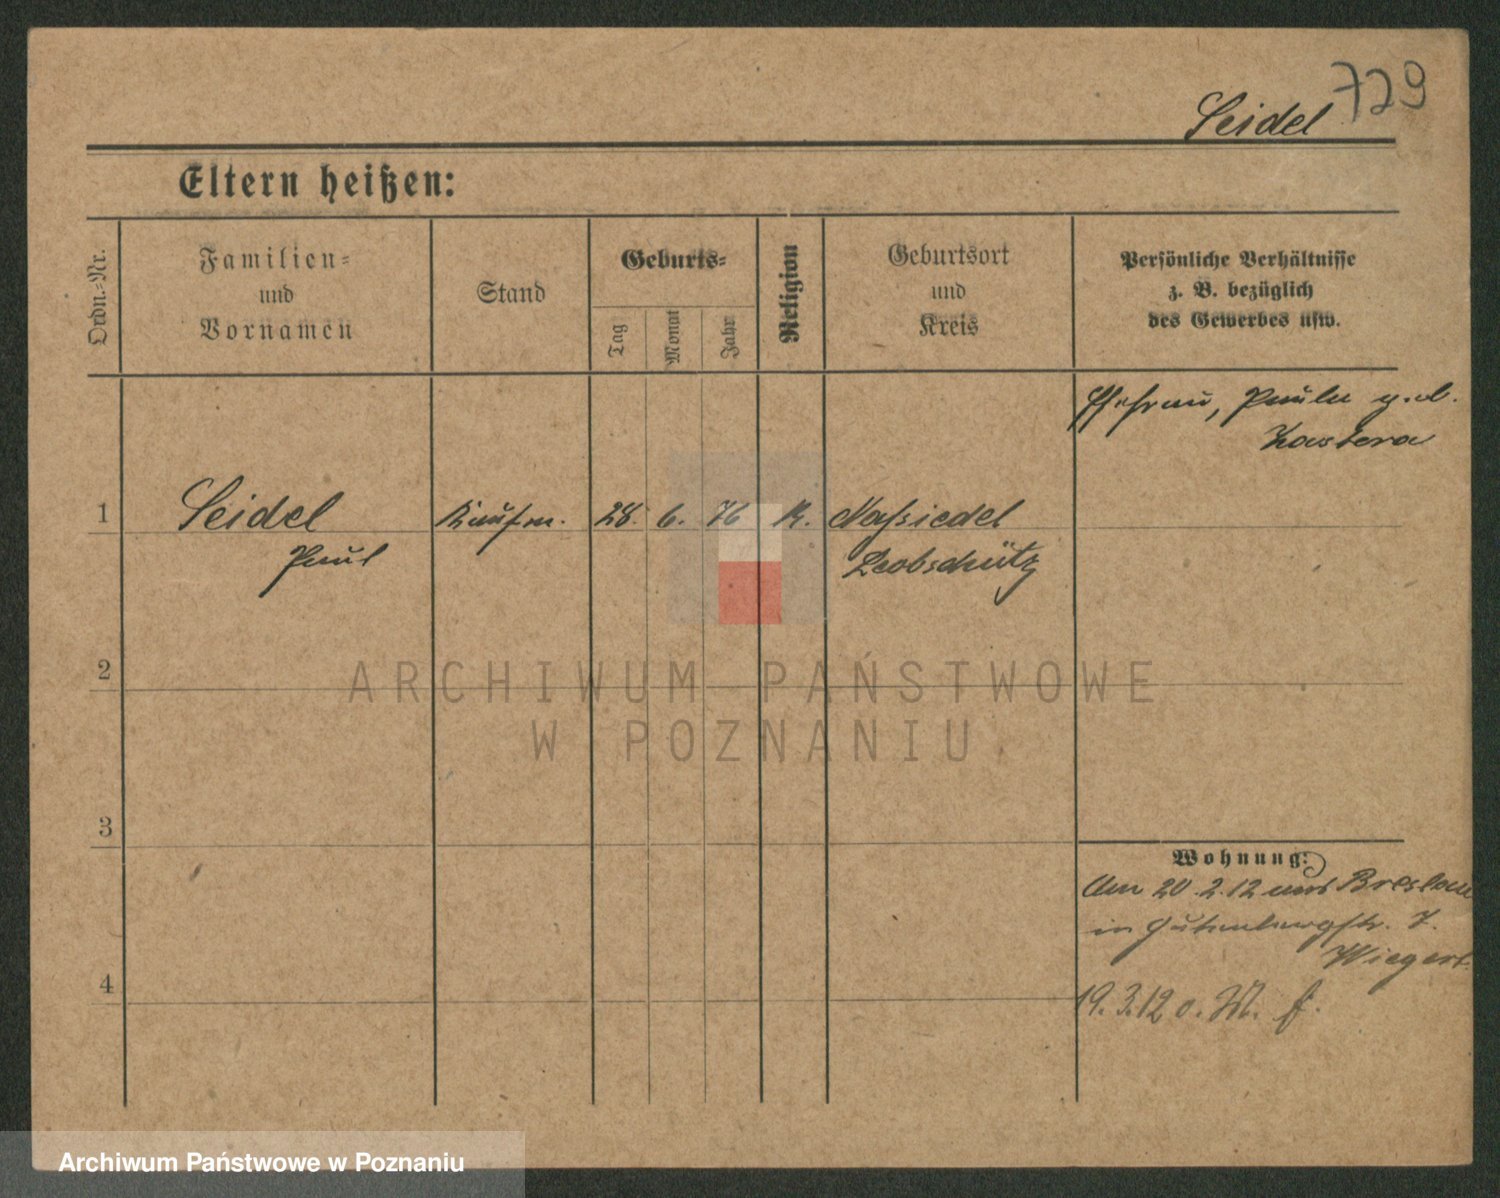 729
Seidel
Eltern heißen:
Ordn.-Nr.
Familien-
und
Vornamen
Stand
Geburts-
Tag
Monat
Jahr
Religion
Geburtsort
und
Kreis
Persönliche Verhältnisse
z. B. bezüglich
des Gewerbes usw.
Ehefrau, Paula
1
Seidel
Paul
Kaufm.
28.
6.
76
K.
Nassiedel
Leobschütz
2
3
4
Wohnung:
20.2.12 Breslau
in Gutenbergstr. 7.
Wiegert
19.3.12 o. W.
ARCHIWUM PAŃSTWOWE
W POZNANIU
Archiwum Państwowe w Poznaniu